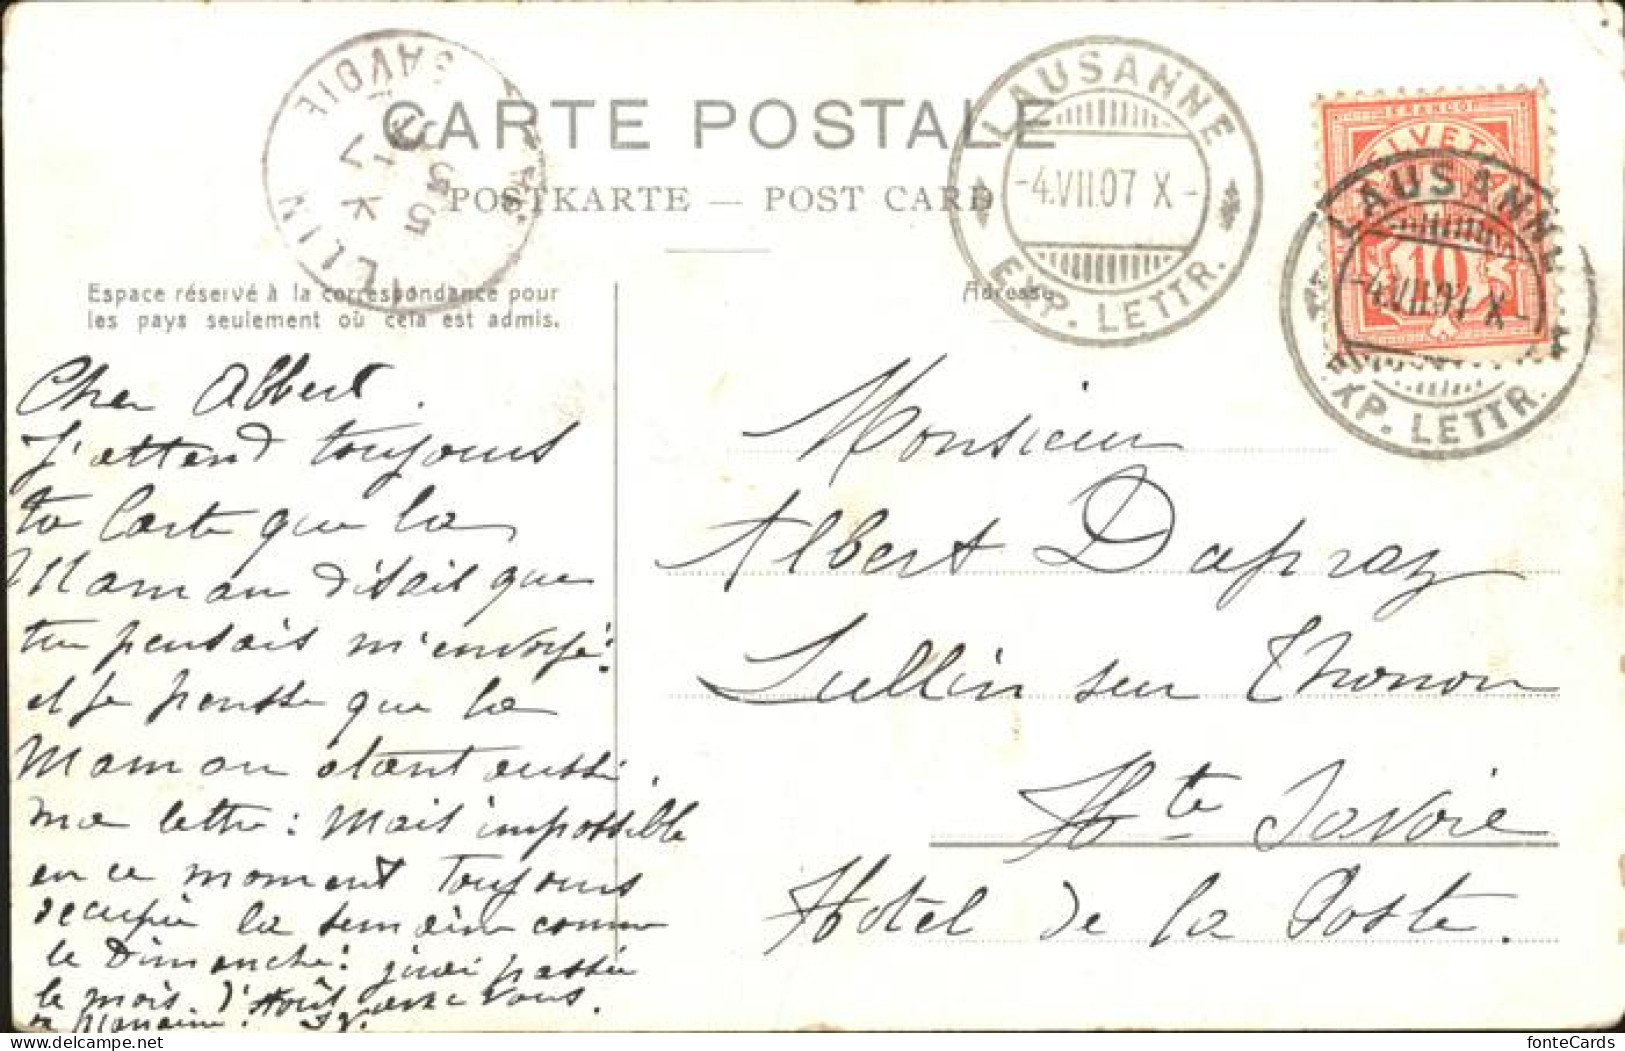 CARTE POSTALE
POSTKARTE — POST CARD
LULLIN
SAVOIE
LAUSANNE
-4.VII.07 X-
EXP. LETTR.
FRANCO
HELVETIA
10
LAUSANNE
-4.VII.07 X-
EXP. LETTR.
Espace réservé à la correspondance pour
les pays seulement où cela est admis.
Adresse
Cher Albert.
J'attend toujours
ta Carte que la
Maman disait que
tu pensais m'envoyé:
et je pensse que la
Maman étant aussi
ma lettre: Mais impossible
en ce moment toujours
occupée la semaine comme
le Dimanche: j'irai passée
le mois d'Août avec Vous.
Monsieur
Albert Dapraz
Lullin sur Thonon
Hte Savoie
Hotel de la Poste.
fonteCards
www.delcampe.net